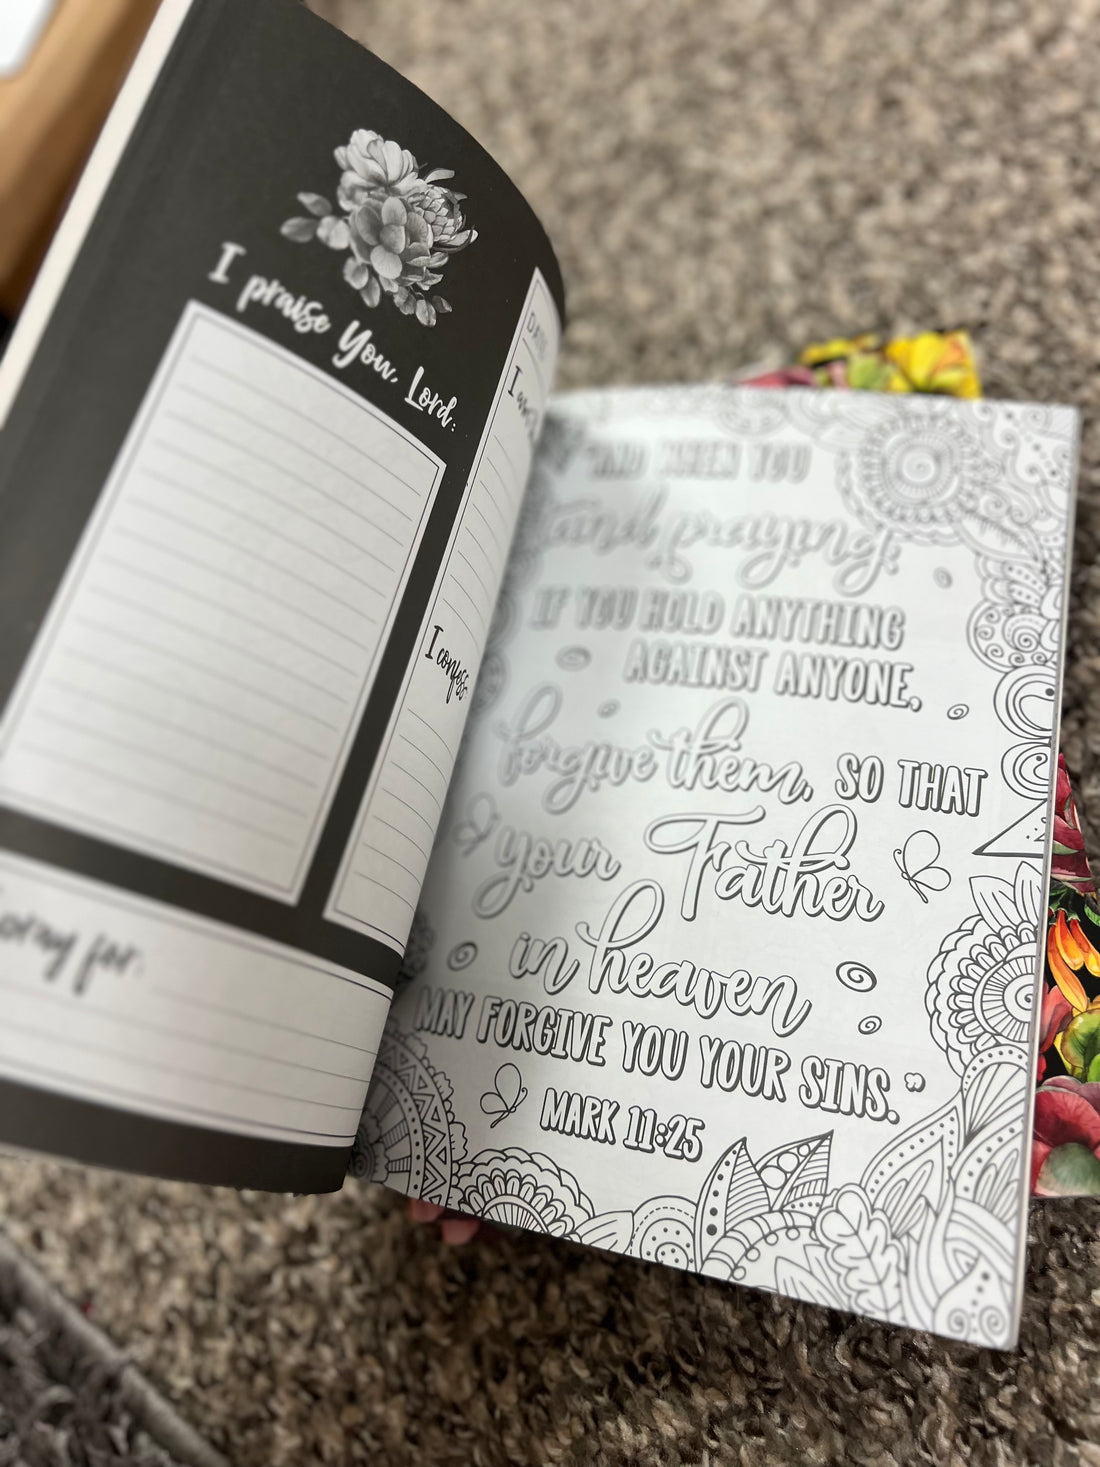 I praise You, Lord:
DATE:
I confess
pray for:
"AND WHEN YOU
stand praying,
IF YOU HOLD ANYTHING
AGAINST ANYONE,
forgive them, SO THAT
your Father
in heaven
MAY FORGIVE YOU YOUR SINS."
MARK 11:25